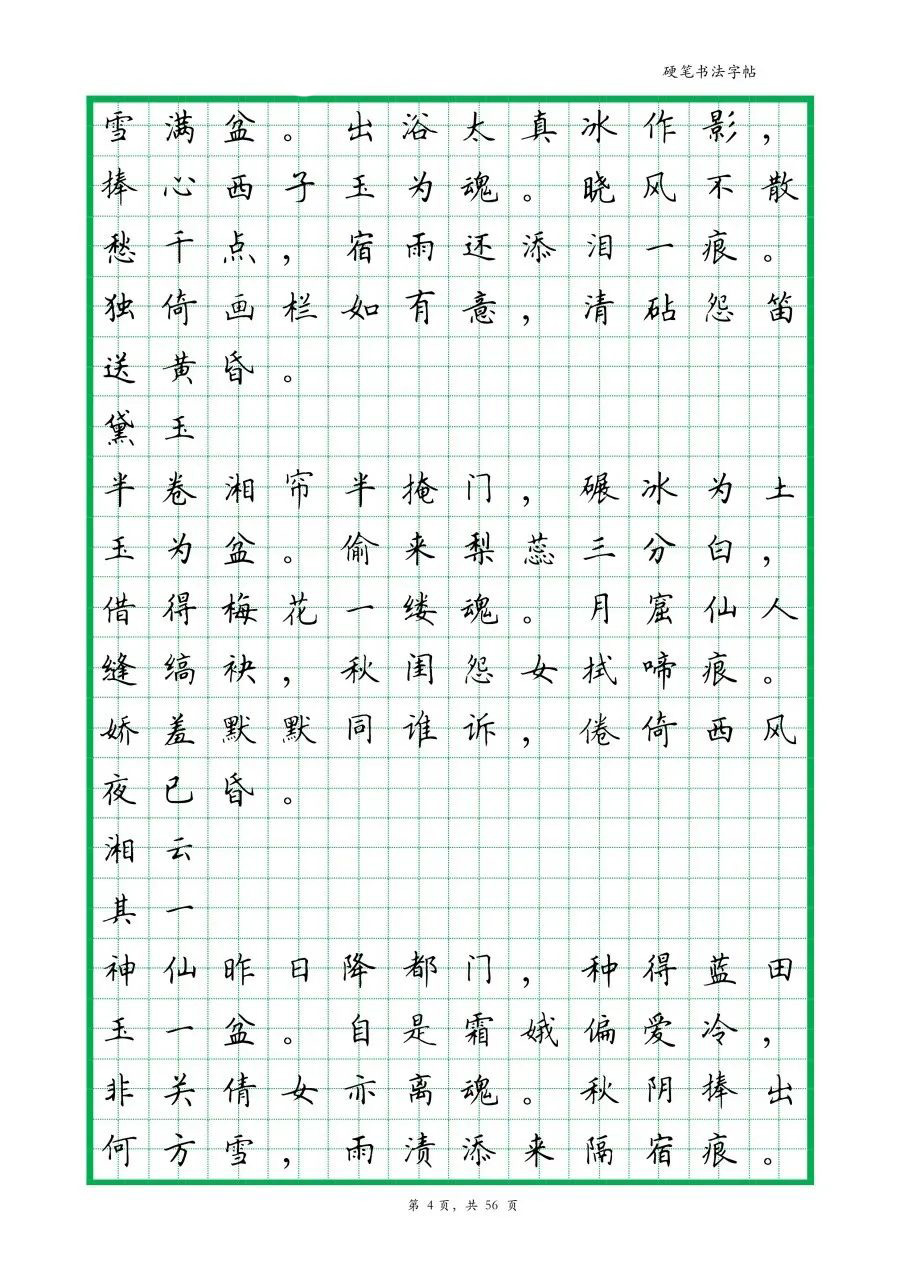 硬笔书法字帖
雪满盆。出浴太真冰作影，
捧心西子玉为魂。晓风不散
愁千点，宿雨还添泪一痕。
独倚画栏如有意，清砧怨笛
送黄昏。
黛玉
半卷湘帘半掩门，碾冰为土
玉为盆。偷来梨蕊三分白，
借得梅花一缕魂。月窟仙人
缝缟袂，秋闺怨女拭啼痕。
娇羞默默同谁诉，倦倚西风
夜已昏。
湘云
其一
神仙昨日降都门，种得蓝田
玉一盆。自是霜娥偏爱冷，
非关倩女亦离魂。秋阴捧出
何方雪，雨渍添来隔宿痕。
第 4 页，共 56 页